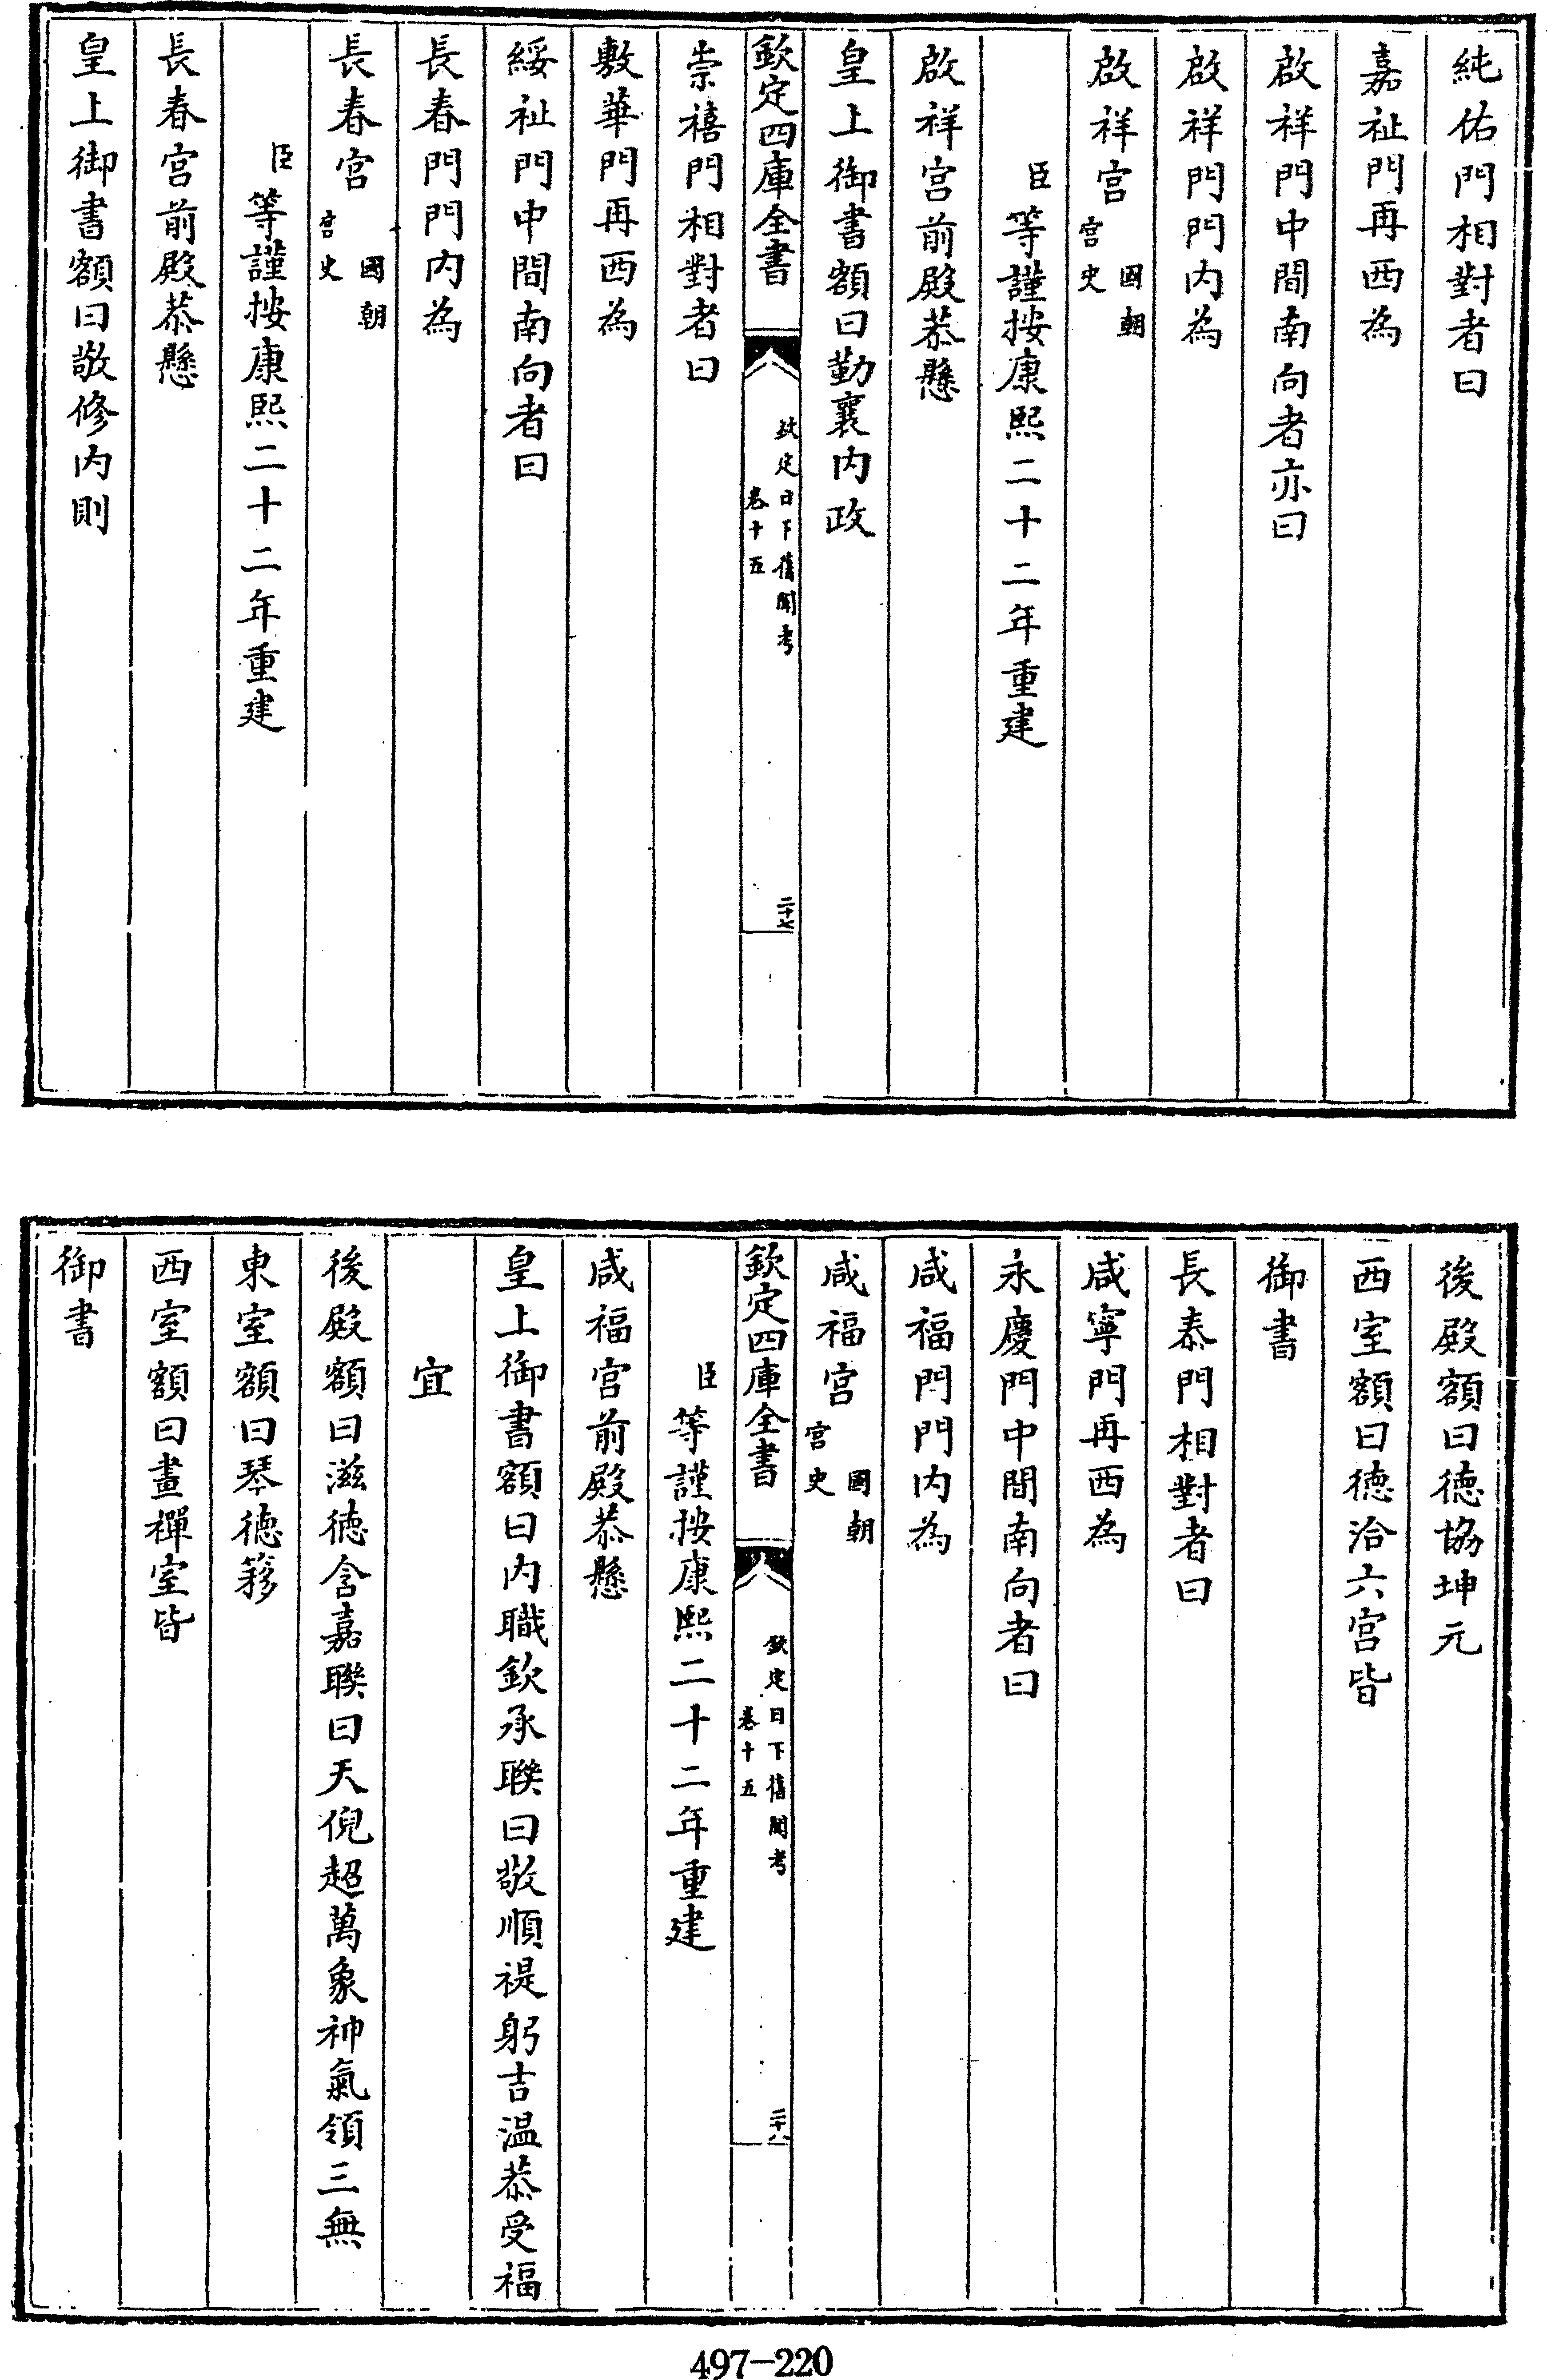 純佑門相對者曰
嘉祉門再西為
啟祥門中間南向者亦曰
啟祥門門内為
啟祥宫國朝宫史
臣等謹按康熙二十二年重建
啟祥宫前殿恭懸
皇上御書額曰勤襄内政
欽定四庫全書
欽定日下舊聞考
卷十五
二十七
崇禧門相對者曰
敷華門再西為
綏祉門中間南向者曰
長春門門内為
長春宫國朝宫史
臣等謹按康熙二十二年重建
長春宫前殿恭懸
皇上御書額曰敬修内則
後殿額曰徳協坤元
西室額曰徳洽六宫皆
御書
長泰門相對者曰
咸寧門再西為
永慶門中間南向者曰
咸福門門内為
咸福宫國朝宫史
欽定四庫全書
欽定日下舊聞考
卷十五
二十八
臣等謹按康熙二十二年重建
咸福宫前殿恭懸
皇上御書額曰内職欽承聨曰敬順禔躬吉温恭受福
宜
後殿額曰滋徳含嘉聨曰天倪超萬象神氣領三無
東室額曰琴徳簃
西室額曰畫禪室皆
御書
497-220